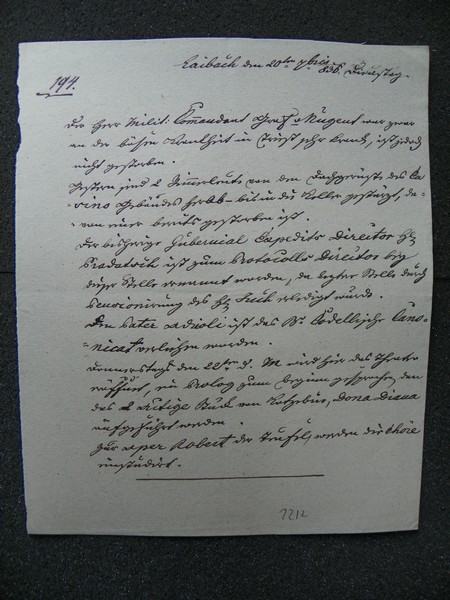 Laibach den 20ten 7bris 836. Dienstag.
194.
Der Herr Milit: Comandant Graf Nugent war zwar
an der bösen Krankheit in Triest sehr krank, ist jedoch
nicht gestorben.
Gestern sind 2 Zimmerleute von dem Dachgerüste des Ca-
sino Gebäudes herab bis in die Keller gestürzt, da-
von einer bereits gestorben ist.
Der bisherige Gubernial Expedits Director H:
Pradatsch ist zum Protocolls Director bey
dieser Stelle ernannt worden, da letzte Stelle durch
Pensionirung des H: erledigt wurde.
Dem Pater Adioli ist das Canо-
nicat verliehen worden.
Donnerstags den 22ten d. M wird hier das Theater
eröffnet, ein Prolog zum Beginn gesprochen, dann
das 2 aktige Stück von Kotzebue, Dona Diana
aufgeführt werden.
Zur Oper Robert der Teufel, werden die Chöre
einstudirt.
7212